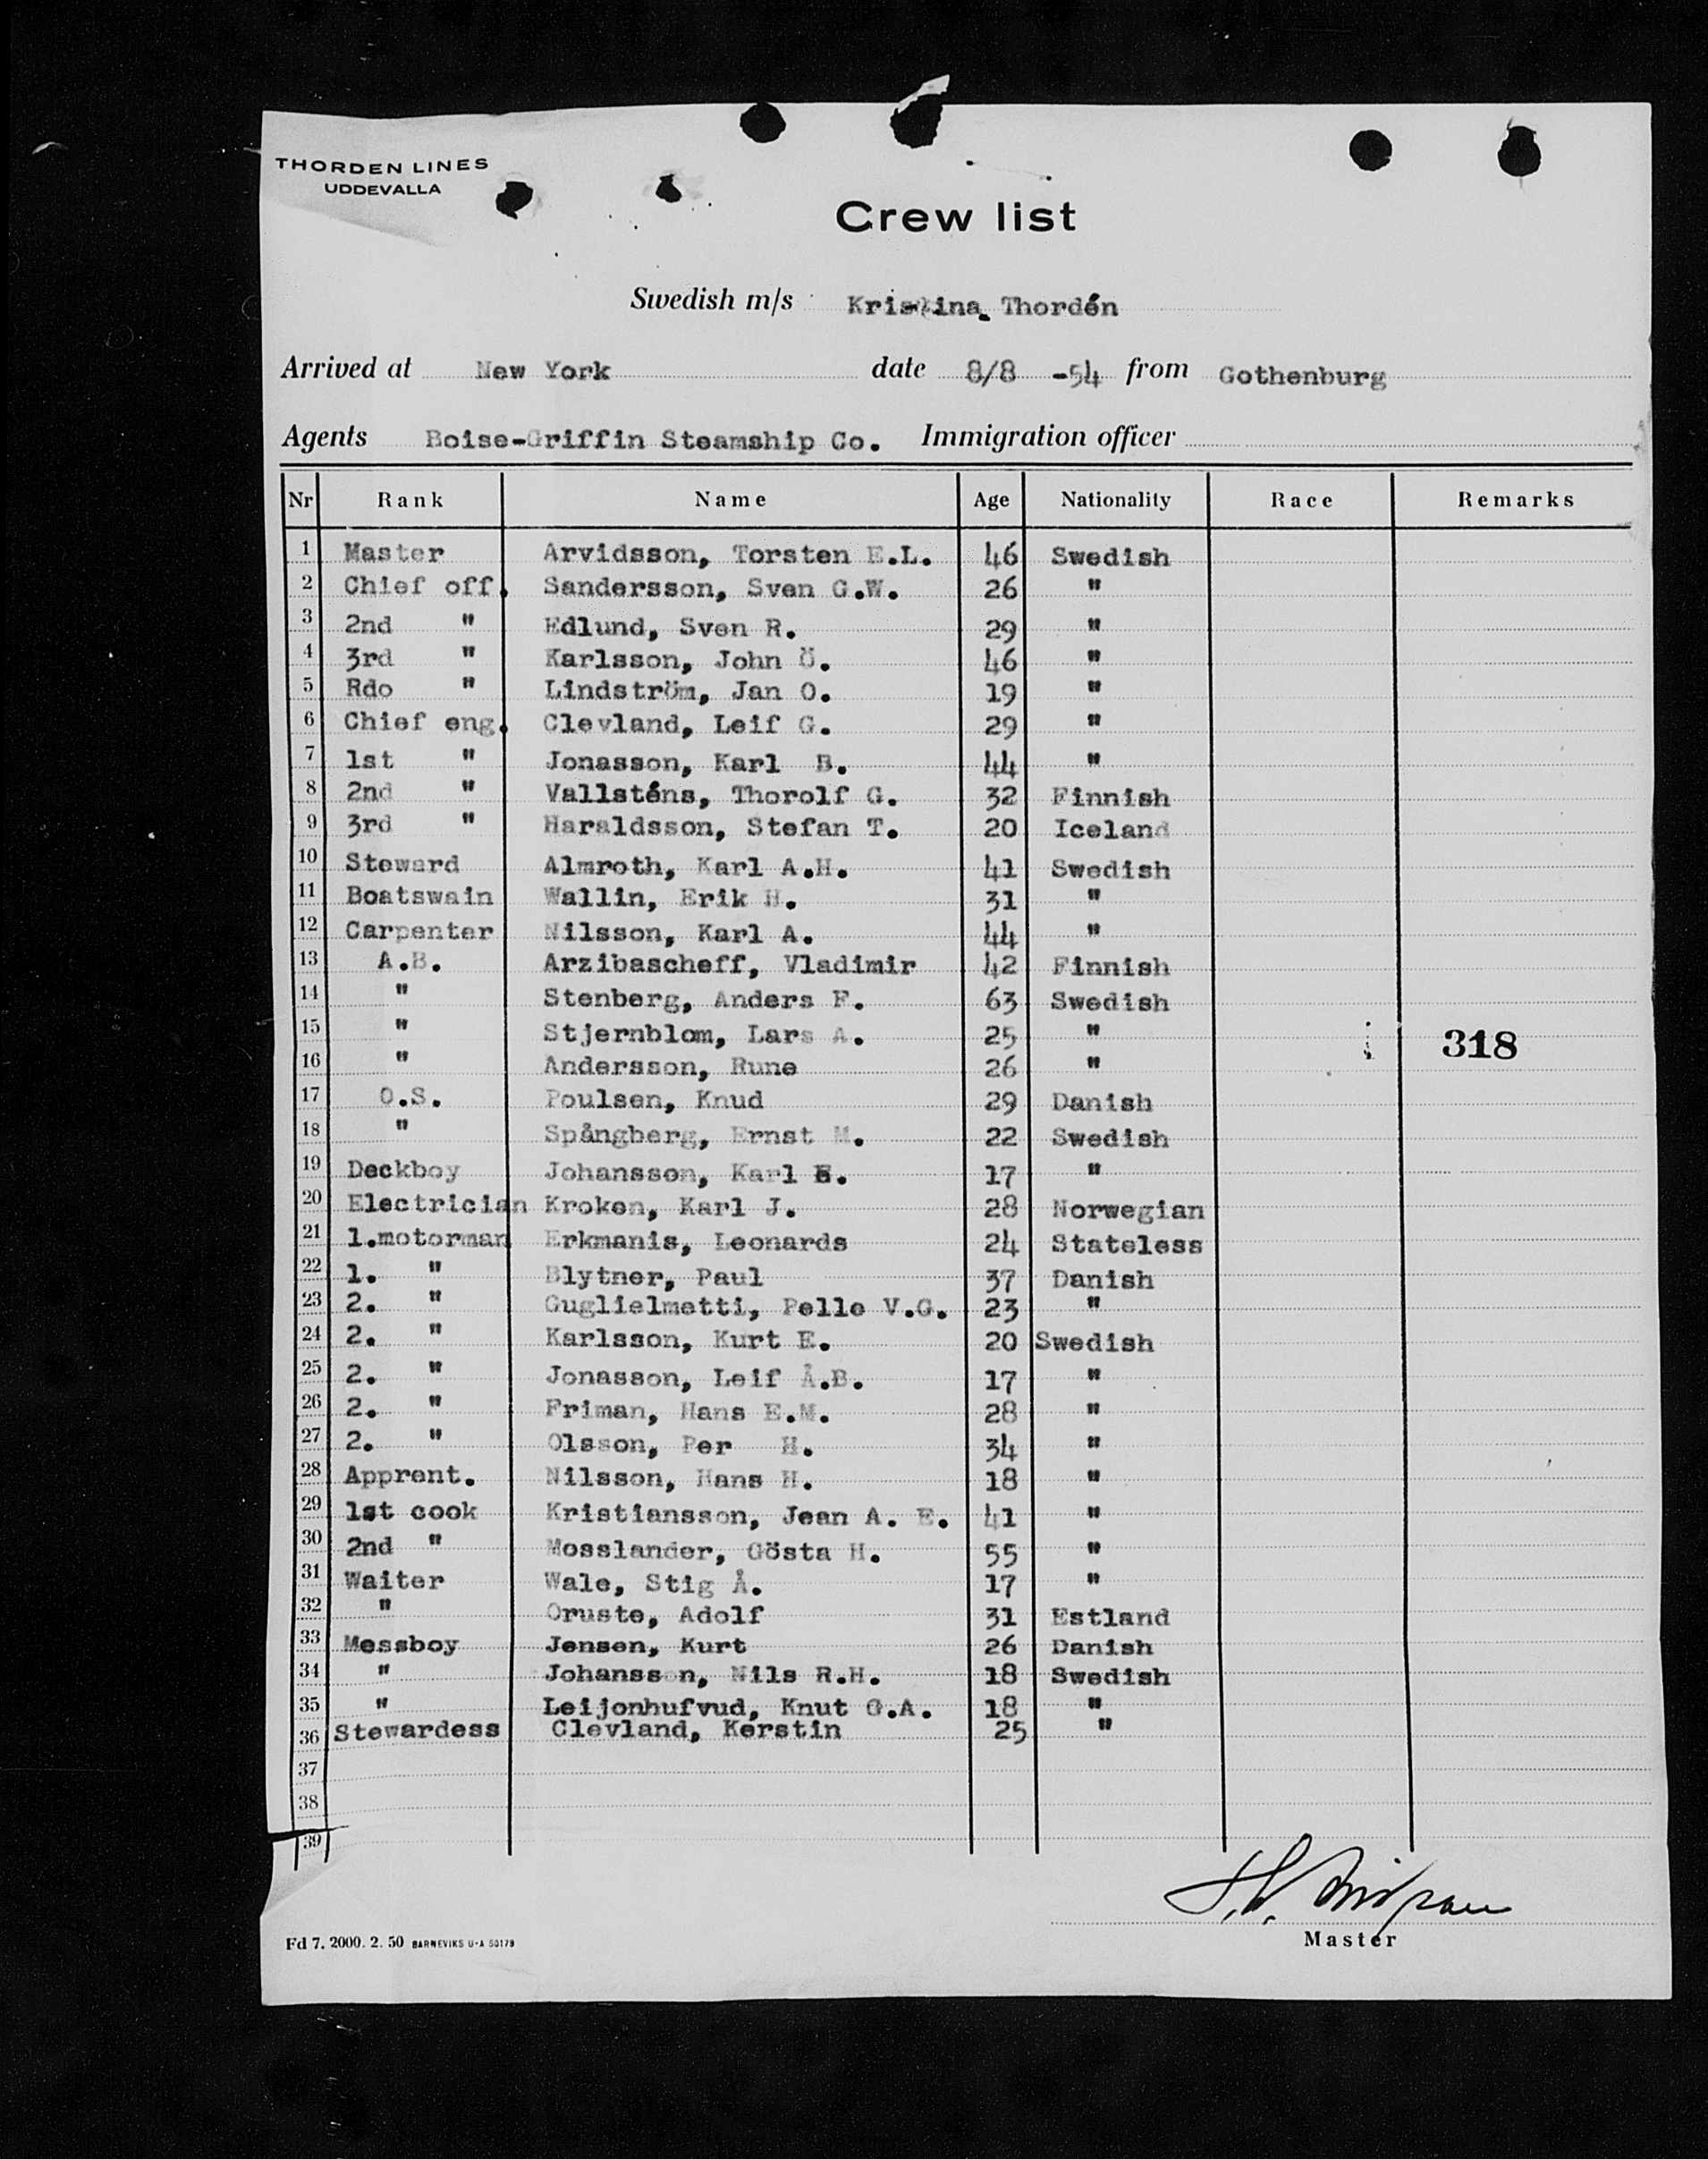 THORDEN LINES
UDDEVALLA
Crew list
Swedish m/s Kristina Thordén
Arrived at New York date 8/8 -54 from Gothenburg
Agents Boise-Griffin Steamship Co. Immigration officer
Nr Rank Name Age Nationality Race Remarks
1 Master Arvidsson, Torsten E.L. 46 Swedish
2 Chief off. Sandersson, Sven G.W. 26 "
3 2nd " Edlund, Sven R. 29 "
4 3rd " Karlsson, John Ö. 46 "
5 Rdo " Lindström, Jan O. 19 "
6 Chief eng. Clevland, Leif G. 29 "
7 1st " Jonasson, Karl B. 44 "
8 2nd " Vallsténs, Thorolf G. 32 Finnish
9 3rd " Haraldsson, Stefan T. 20 Iceland
10 Steward Almroth, Karl A.H. 41 Swedish
11 Boatswain Wallin, Erik H. 31 "
12 Carpenter Nilsson, Karl A. 44 "
13 A.B. Arzibascheff, Vladimir 42 Finnish
14 " Stenberg, Anders F. 63 Swedish
15 " Stjernblom, Lars A. 25 " 318
16 " Andersson, Rune 26 "
17 O.S. Poulsen, Knud 29 Danish
18 " Spångberg, Ernst M. 22 Swedish
19 Deckboy Johansson, Karl E. 17 "
20 Electrician Kroken, Karl J. 28 Norwegian
21 1.motorman Erkmanis, Leonards 24 Stateless
22 1. " Blytner, Paul 37 Danish
23 2. " Guglielmetti, Pelle V.G. 23 "
24 2. " Karlsson, Kurt E. 20 Swedish
25 2. " Jonasson, Leif Å.B. 17 "
26 2. " Friman, Hans E.M. 28 "
27 2. " Olsson, Per H. 34 "
28 Apprent. Nilsson, Hans H. 18 "
29 1st cook Kristiansson, Jean A. E. 41 "
30 2nd " Mosslander, Gösta H. 55 "
31 Waiter Wale, Stig Å. 17 "
32 " Oruste, Adolf 31 Estland
33 Messboy Jensen, Kurt 26 Danish
34 " Johansson, Nils R.H. 18 Swedish
35 " Leijonhufvud, Knut G.A. 18 "
36 Stewardess Clevland, Kerstin 25 "
37
38
39
Master
Fd 7. 2000. 2. 50 BARNEVIKS U-A 50179